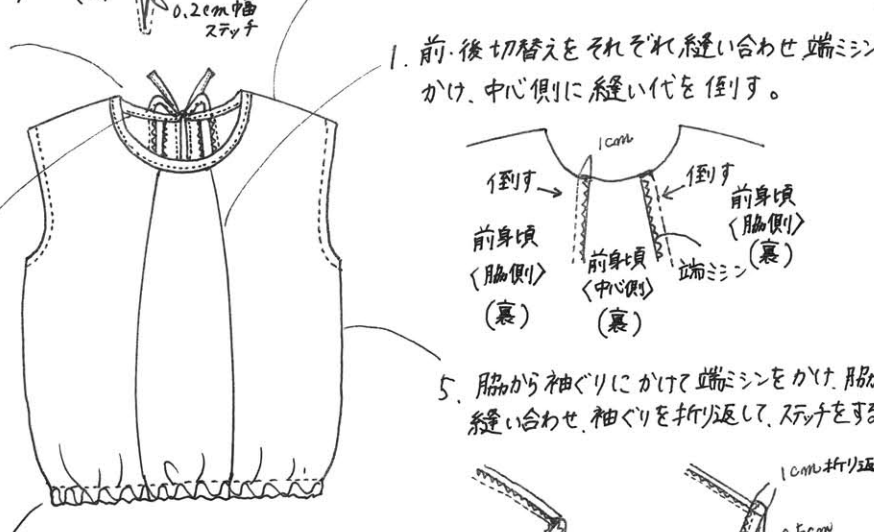 0.2cm幅
ステッチ
1. 前・後切替えをそれぞれ縫い合わせ端ミシン
かけ、中心側に縫い代を倒す。
1cm
倒す
倒す
前身頃
〈脇側〉
(裏)
前身頃
〈脇側〉
(裏)
前身頃
〈中心側〉
(裏)
端ミシン
5. 脇から袖ぐりにかけて端ミシンをかけ、脇
縫い合わせ、袖ぐりを折り返して、ステッチをする
1cm折り返